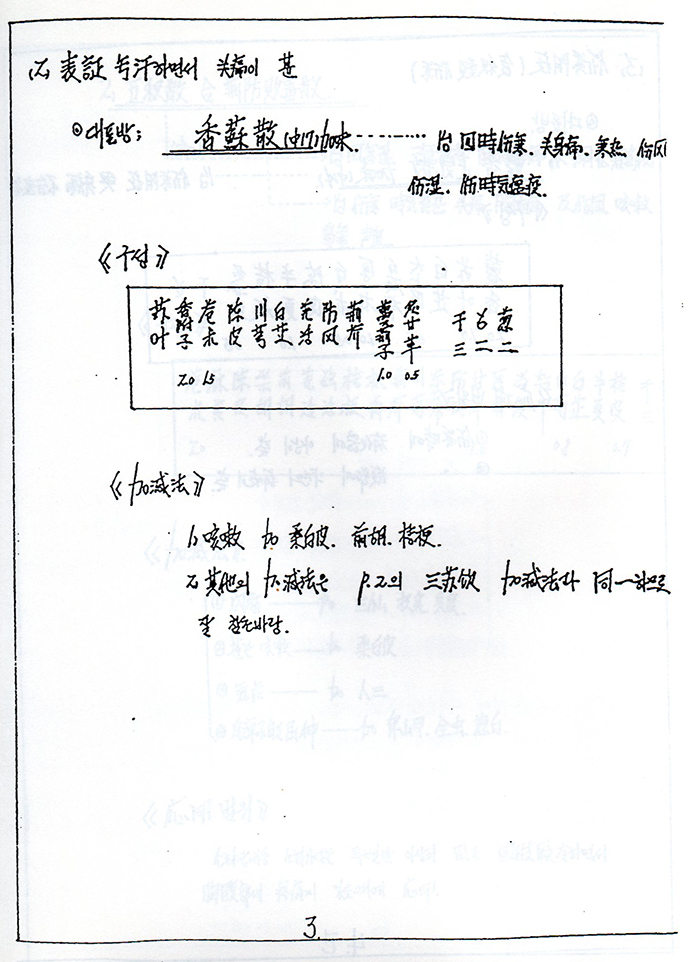 2) 表証 亏汗하면서 头痛이 甚
◎대표방: 香蘇散(中17)加味 ---------- 治 四時伤寒. 头身痛. 寒热. 伤风
伤湿. 伤時気瘟疫.
《구성》
苏叶 香附子 苍朮 陈皮 川芎 白芷 羌活 防风 薄荷 蔓荊子 灸甘草 干三 召二 葱二
2.0 1.5 1.0 0.5
《加减法》
1) 咳嗽 加 桑白皮. 前胡. 桔梗.
2) 其他의 加减法은 p.2의 三苏飮 加减法과 同一하므로
잘 참고바람.
3